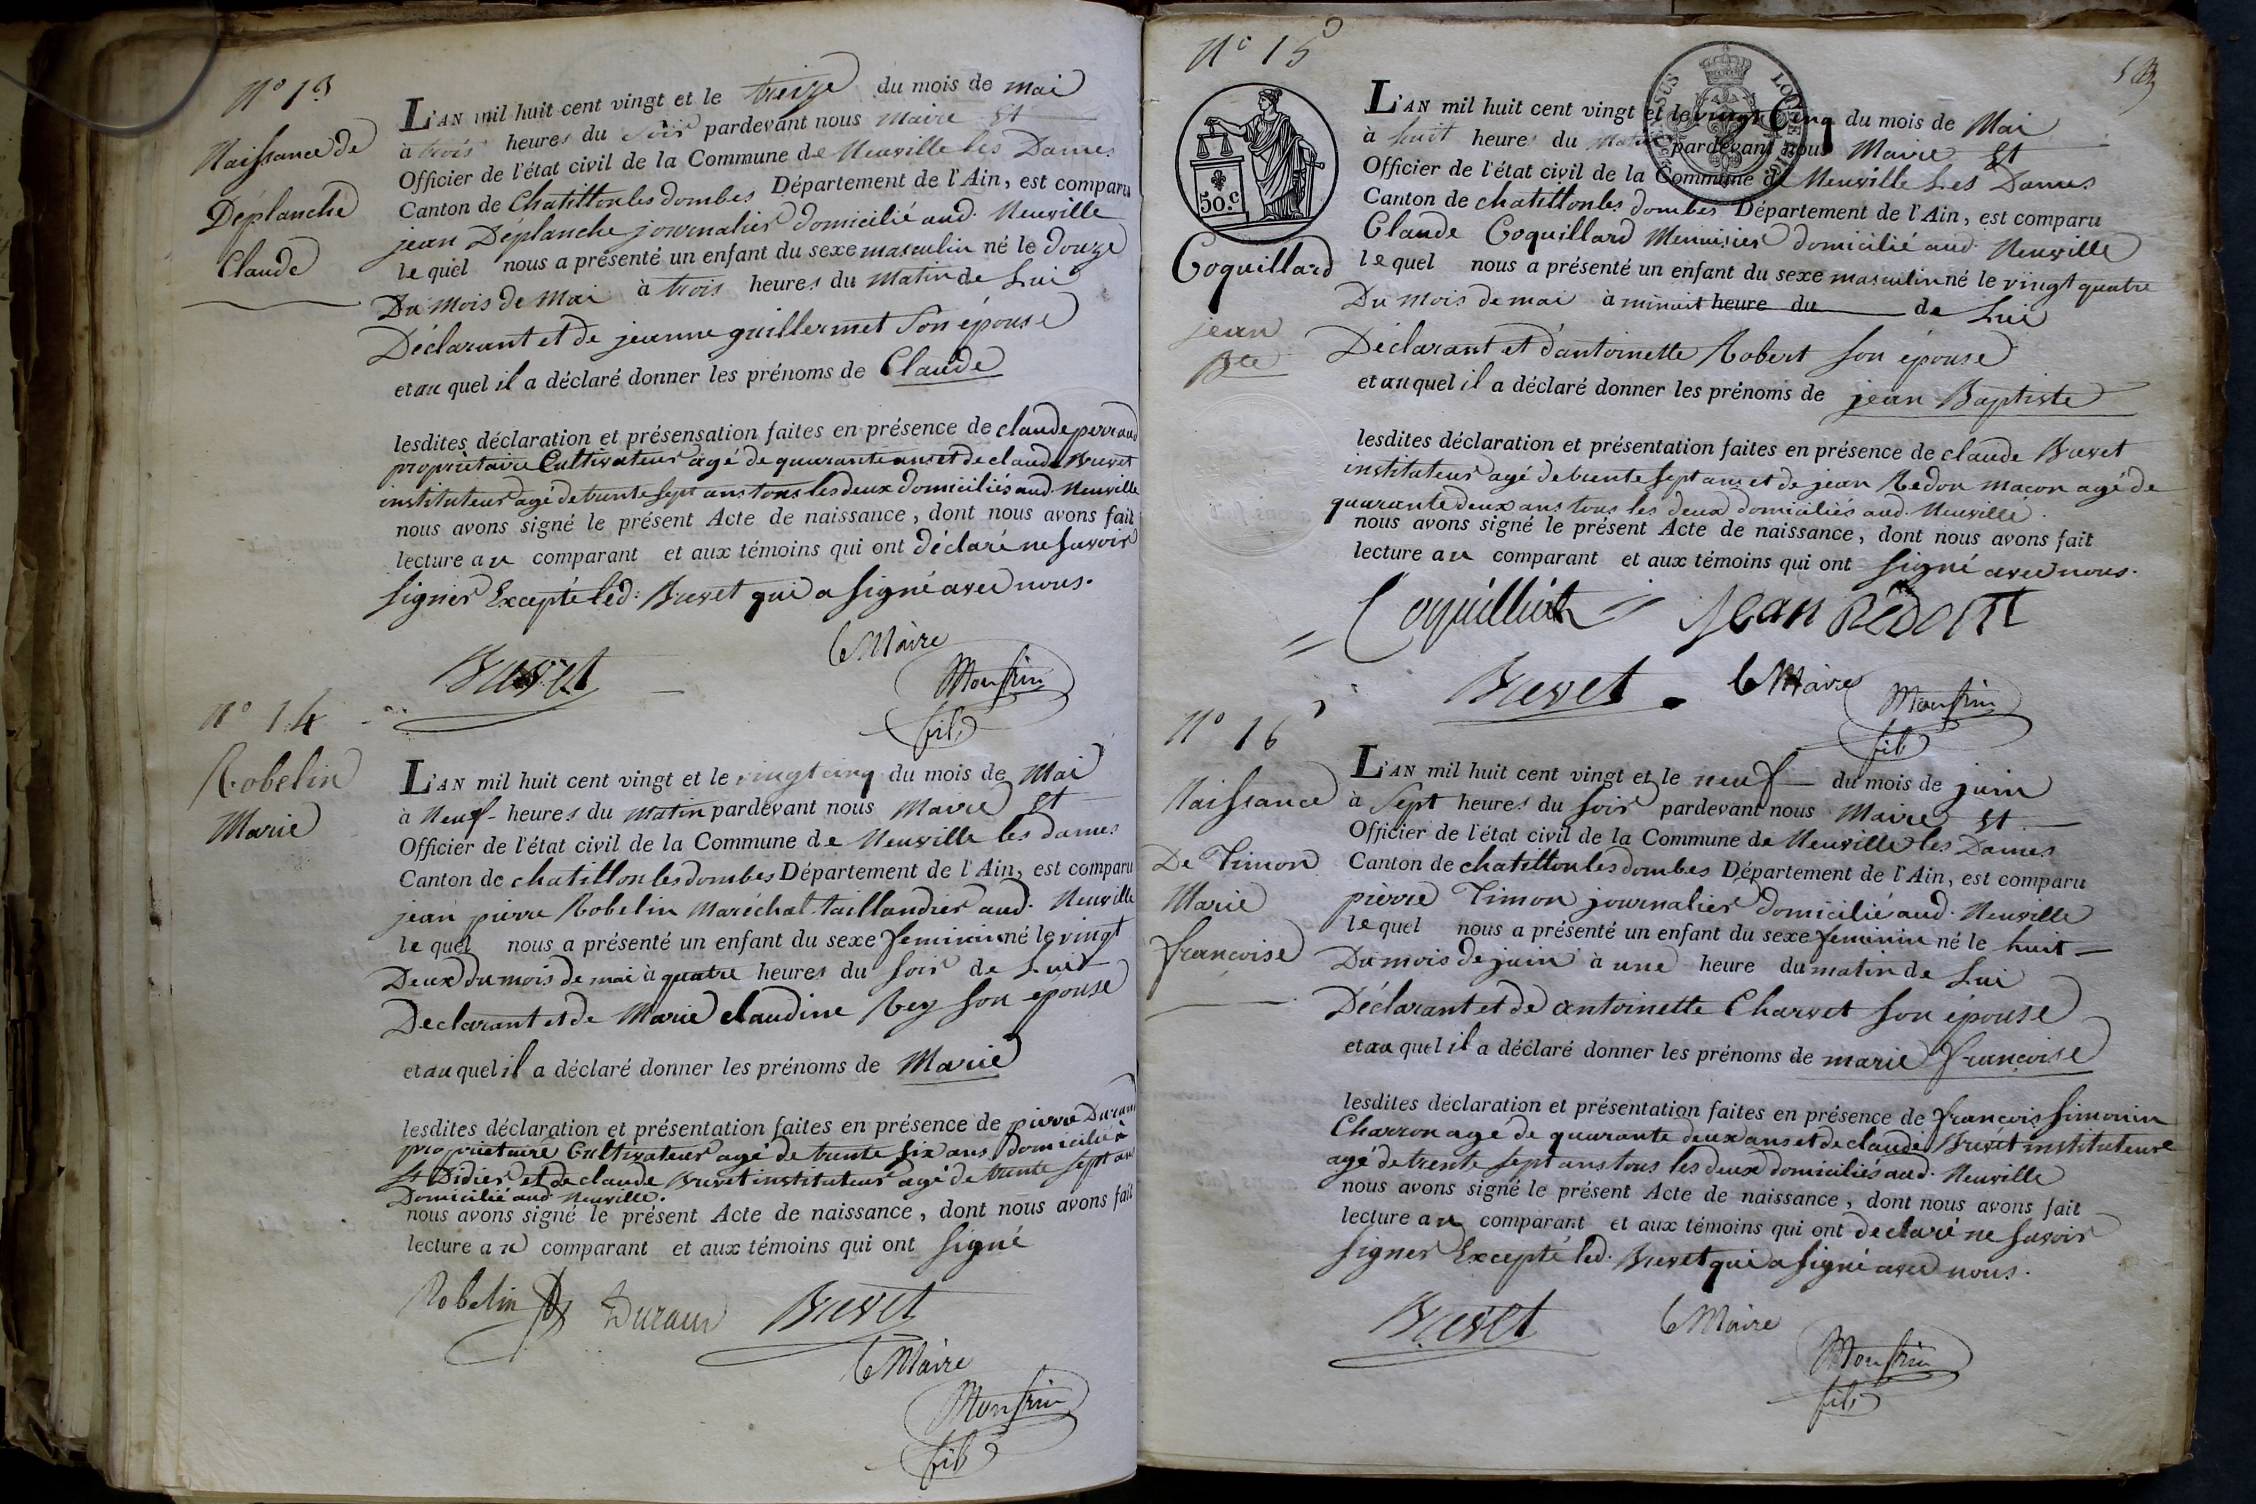 N° 13
Naissance de
Déplanche
Claude
L'AN mil huit cent vingt et le treize du mois de mai
à trois heures du soir pardevant nous Maire Et
Officier de l'état civil de la Commune de Neuville les Dames
Canton de Chatillon les dombes Département de l'Ain, est comparu
jean Déplanche journalier domicilié aud. Neuville
le quel nous a présenté un enfant du sexe masculin né le douze
Du Mois de Mai à trois heures du Matin de Lui
Déclarant et de jeanne guillermet Son épouse
et au quel il a déclaré donner les prénoms de Claude
lesdites déclaration et présensation faites en présence de claude perraud
propriétaire Cultivateur agé de quarante ans et de claude Brevet
instituteur agé de trente sept ans tous les deux domiciliés aud. Neuville
nous avons signé le présent Acte de naissance, dont nous avons fait
lecture au comparant et aux témoins qui ont déclaré ne savoir
signer Excepté led: Brevet qui a signé avec nous.
Brevet
le Maire
Monfrin
fils
N° 14
Robelin
Marie
L'AN mil huit cent vingt et le vingt cinq du mois de Mai
à Neuf heures du Matin pardevant nous Maire Et
Officier de l'état civil de la Commune de Neuville les dames
Canton de chatillon les dombes Département de l'Ain, est comparu
jean pierre Robelin Maréchal-taillandier aud. Neuville
le quel nous a présenté un enfant du sexe feminin né le vingt
Deux du mois de mai à quatre heures du soir de Lui
Declarant et de Marie claudine Rey son epouse
et au quel il a déclaré donner les prénoms de Marie
lesdites déclaration et présentation faites en présence de pierre Durand
propriétaire Cultivateur agé de trente six ans domicilié à
St Didier et de claude Brevet instituteur agé de trente sept ans
Domicilié aud. Neuville.
nous avons signé le présent Acte de naissance, dont nous avons fait
lecture au comparant et aux témoins qui ont signé
Robelin Durand Brevet
le Maire
Monfrin
fils
N° 15
50.C
Coquillard
jean
Bte
L'AN mil huit cent vingt et le vingt Cinq du mois de Mai
à huit heures du Matin pardevant nous Maire Et
Officier de l'état civil de la Commune de Neuville Les Dames
Canton de chatillon les dombes Département de l'Ain, est comparu
Claude Coquillard Menuisier domicilié aud. Neuville
le quel nous a présenté un enfant du sexe masculin né le vingt quatre
Du mois de mai à minuit heure du de Lui
Déclarant et d'antoinette Robert son épouse
et au quel il a déclaré donner les prénoms de jean Baptiste
lesdites déclaration et présentation faites en présence de claude Brevet
instituteur agé de trente sept ans et de jean Redon maçon agé de
quarante deux ans tous les deux domiciliés aud. Neuville.
nous avons signé le présent Acte de naissance, dont nous avons fait
lecture au comparant et aux témoins qui ont signé avec nous.
jean Rédon
Brevet. le Maire
Monfrin
fils
N° 16
Naissance
De Timon
Marie
françoise
L'AN mil huit cent vingt et le neuf du mois de juin
à Sept heures du soir pardevant nous Maire Et
Officier de l'état civil de la Commune de Neuville les Dames
Canton de chatillon les dombes Département de l'Ain, est comparu
pierre Timon journalier domicilié aud. Neuville
le quel nous a présenté un enfant du sexe feminin né le huit
Du mois de juin à une heure du matin de Lui
Déclarant et de antoinette Charvet son épouse
et au quel il a déclaré donner les prénoms de marie françoise
lesdites déclaration et présentation faites en présence de françois simonin
Charron agé de quarante deux ans et de claude Brevet instituteur
agé de trente sept ans tous les deux domiciliés aud. Neuville
nous avons signé le présent Acte de naissance, dont nous avons fait
lecture au comparant et aux témoins qui ont declaré ne savoir
signer Excepté led. Brevet qui a signé avec nous.
Brevet
le Maire
Monfrin
fils